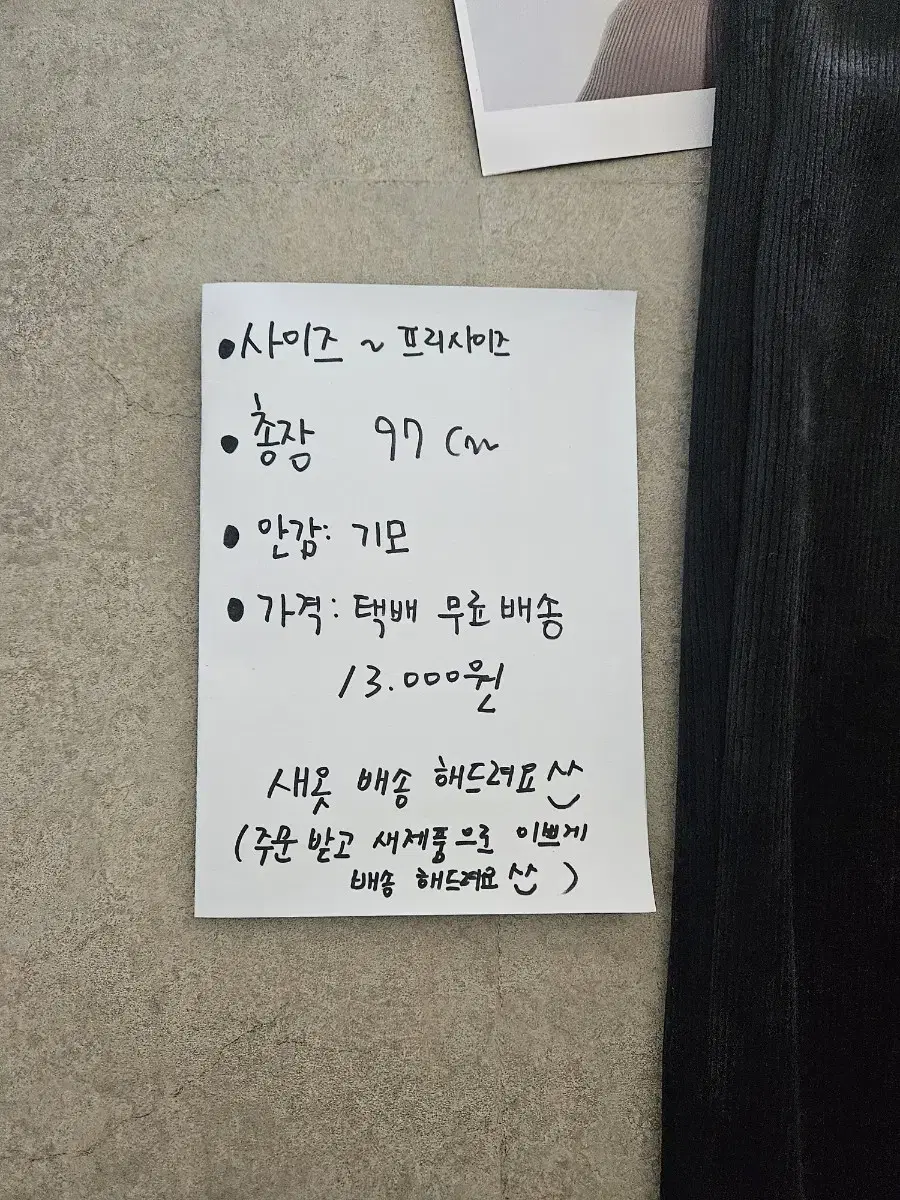 • 사이즈 ~ 프리사이즈
• 총장 97 cm
• 안감: 기모
• 가격: 택배 무료배송
13.000원
새옷 배송 해드려요 ^^
(주문 받고 새제품으로 이쁘게
배송 해드려요 ^^ )